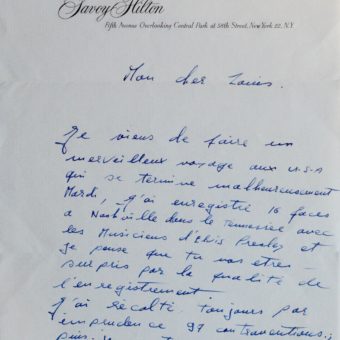 Savoy Hilton
Fifth Avenue Overlooking Central Park at 58th Street, New York 22, N.Y.
Mon cher Louis.
Je viens de faire un
merveilleux voyage aux U.S.A
qui se termine malheureusement
Mardi, j'ai enregistré 16 faces
a Nashville dans le Tennessee avec
les Musiciens d'Elvis Presley et
je pense que tu vas etres
surpris par la qualité de
l'enregistrement.
J'ai récolté toujours par
imprudence 97 contraventions.,